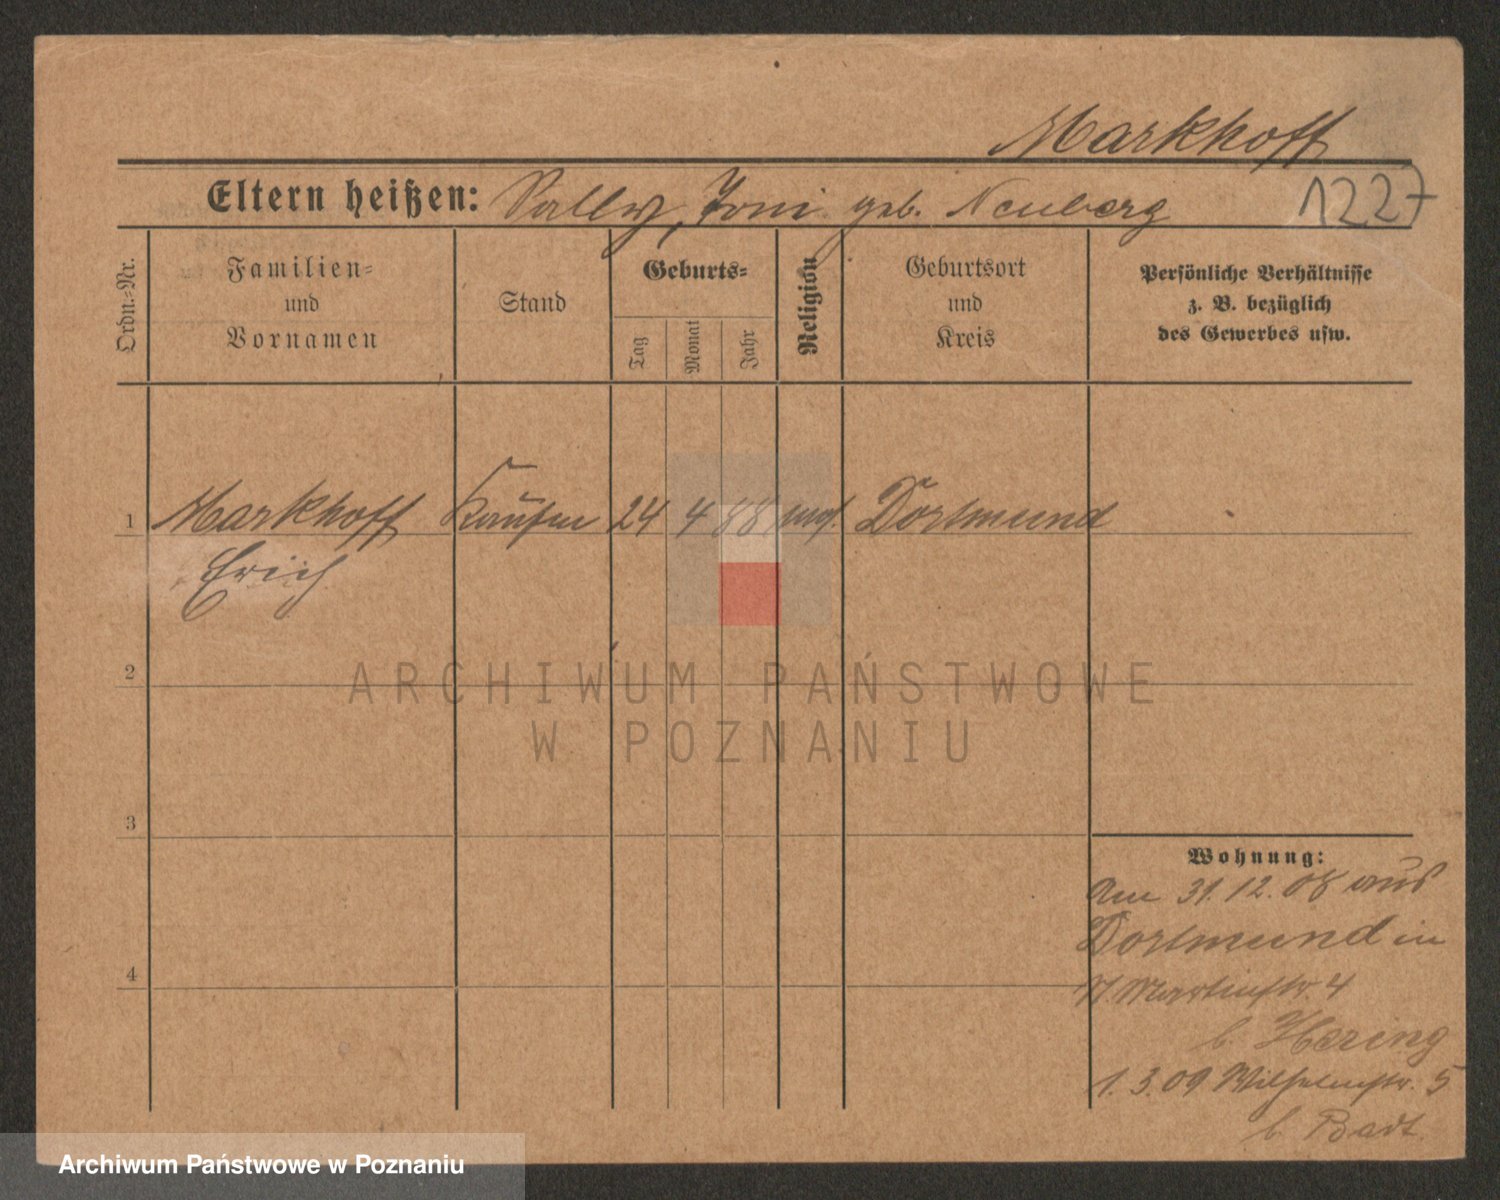 Markhoff
Eltern heißen: Sally, Toni geb. Neuberg 1227
Ordn.=Nr.
Familien=
und
Vornamen
Stand
Geburts=
Tag
Monat
Jahr
Religion
Geburtsort
und
Kreis
Persönliche Verhältnisse
z. B. bezüglich
des Gewerbes usw.
1 Markhoff Kaufm 24 4 88 mos. Dortmund
Erich
2
3
4
Wohnung:
Am 31.12.08 aus
Dortmund in
Martinstr. 4
b. Hering
1.3.09 Wilhelmstr. 5
b. Badt
ARCHIWUM PAŃSTWOWE
W POZNANIU
Archiwum Państwowe w Poznaniu